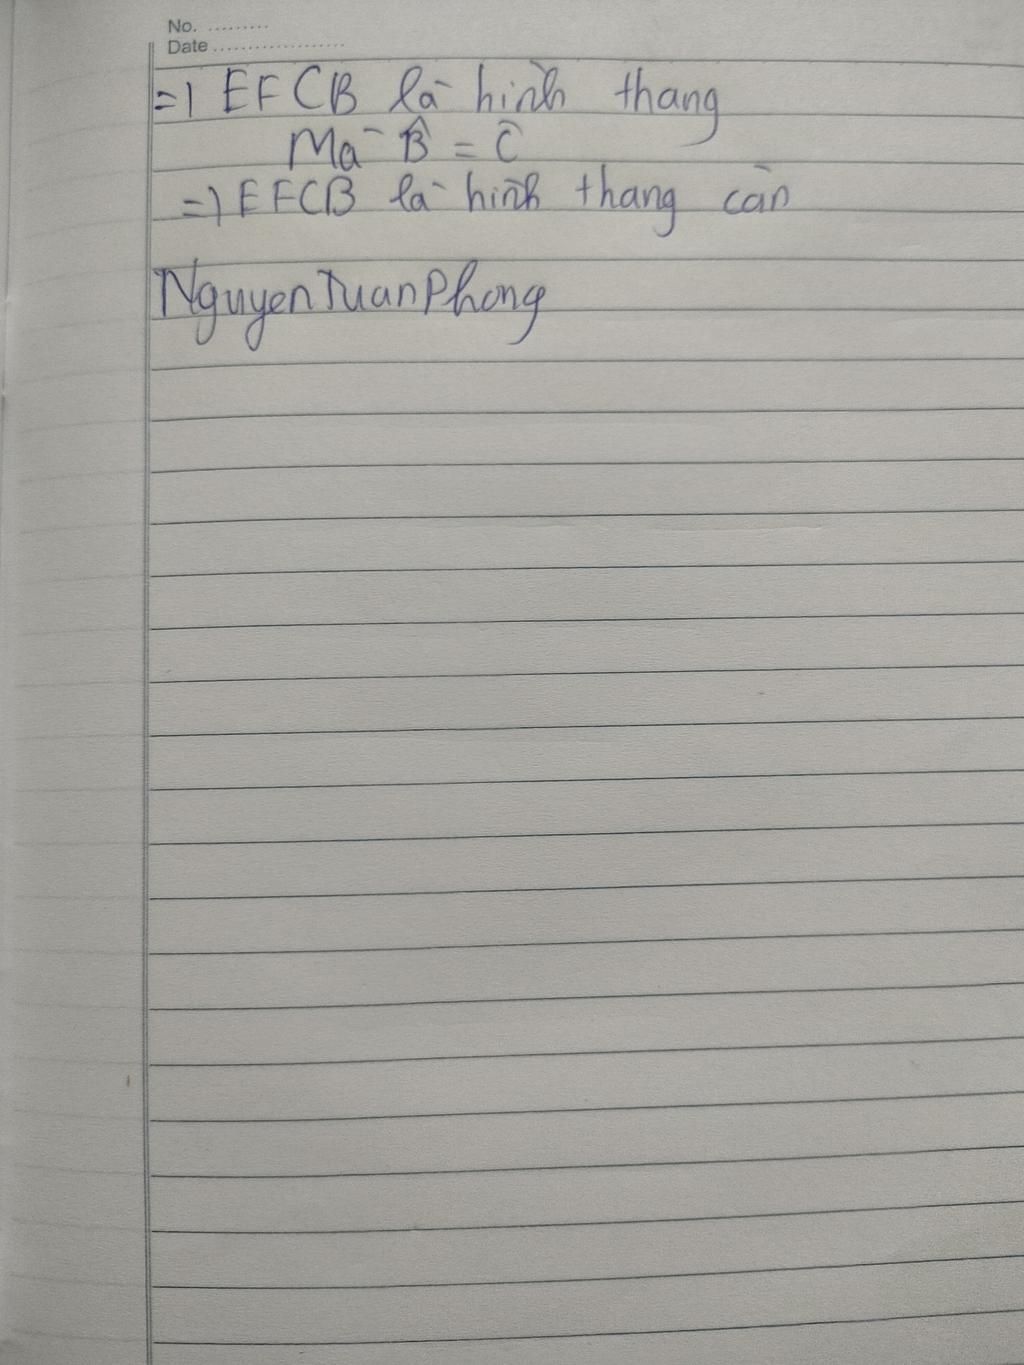 No. .........
Date ...................
=) EFCB là hình thang
Mà B̂ = Ĉ
=) EFCB là hình thang cân
Nguyen Tuan Phong